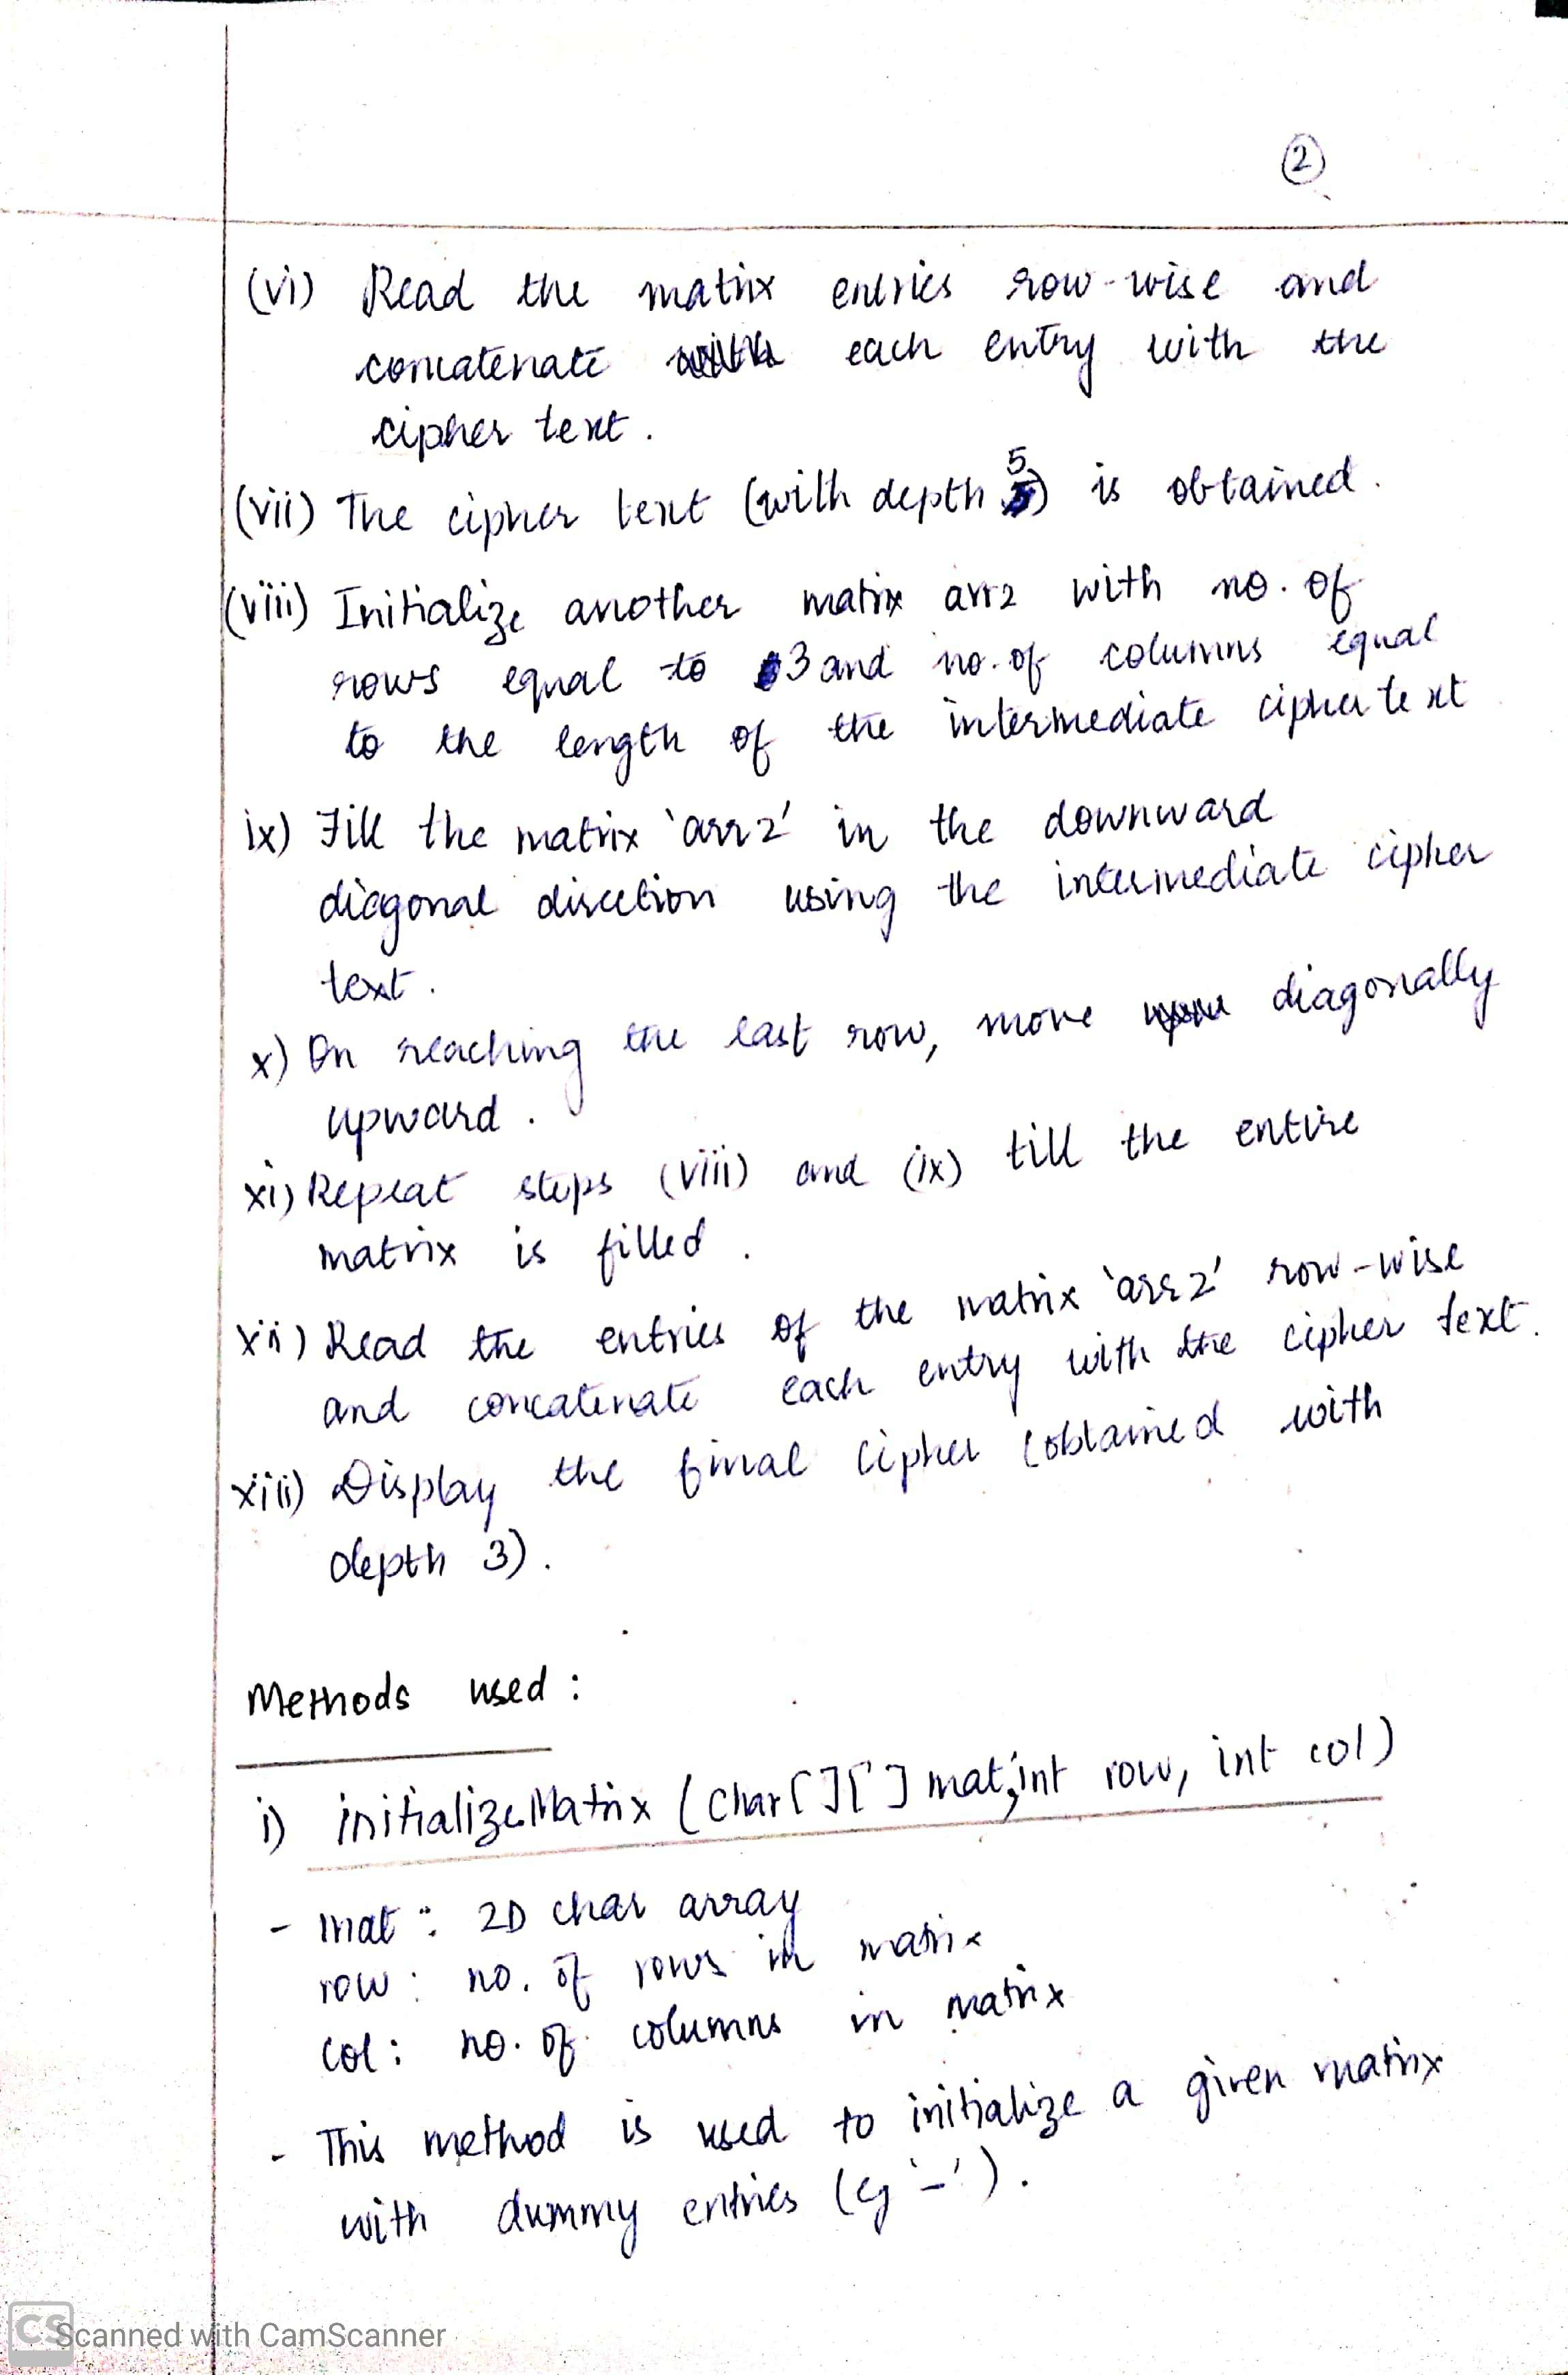 2
(vi) Read the matrix entries row-wise and
concatenate each entry with the
cipher text.
(vii) The cipher text (with depth 5) is obtained.
(viii) Initialize another matrix arr2 with no. of
rows equal to 3 and no. of columns equal
to the length of the intermediate cipher text
ix) Fill the matrix 'arr2' in the downward
diagonal direction using the intermediate cipher
text.
x) On reaching the last row, move diagonally
upward.
xi) Repeat steps (viii) and (ix) till the entire
matrix is filled.
xii) Read the entries of the matrix 'arr2' row-wise
and concatenate each entry with the cipher text.
xiii) Display the final cipher (obtained with
depth 3).
Methods used :
i) initializeMatrix (char[][] mat, int row, int col)
- mat : 2D char array
row : no. of rows in matrix
col : no. of columns in matrix
- This method is used to initialize a given matrix
with dummy entries (eg '-').
CS Scanned with CamScanner